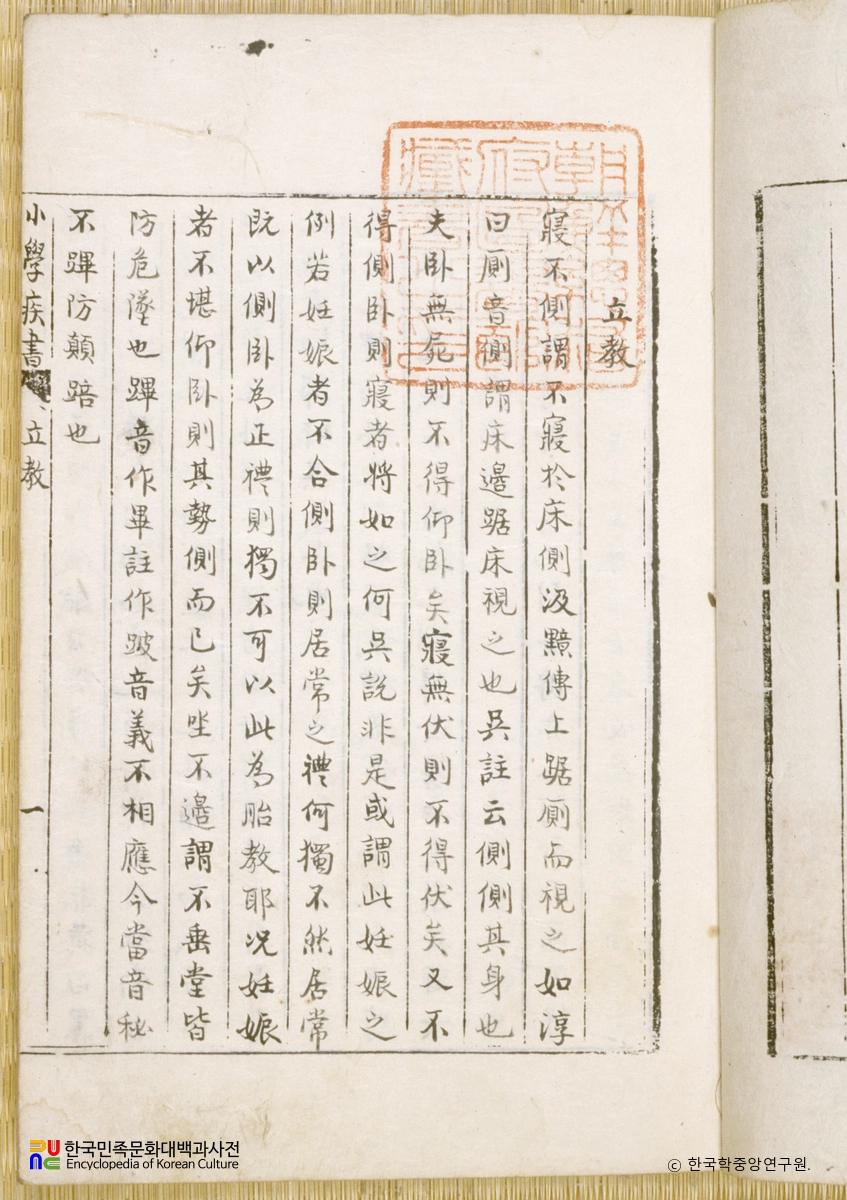 立教
寢不側謂不寢於床側汲黯傳上踞厠而視之如淳
曰厠音側謂床邊踞床視之也吳註云側側其身也
夫卧無屍則不得仰卧矣寢無伏則不得伏矣又不
得側卧則寢者將如之何吳說非是或謂此妊娠之
例若妊娠者不合側卧則居常之禮何獨不然居常
旣以側卧為正禮則獨不可以此為胎教耶况妊娠
者不堪仰卧則其勢側而已矣坐不邊謂不垂堂皆
防危墜也蹕音作畢註作跛音義不相應今當音秘
不蹕防顛踣也
小學疾書 立教 一
한국민족문화대백과사전
Encyclopedia of Korean Culture
© 한국학중앙연구원.